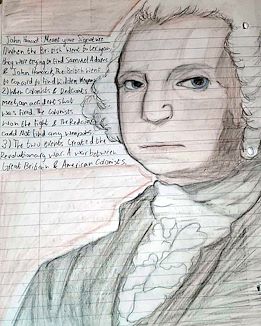 John Hancock Meant your Signature
1) When the British went to Lexington
they were trying to find Samuel Adams
& John Hancock, The British went
to Concord to find hidden Weapons
2) When Colonists & Redcoats
meet, an accident shot
was fired. The Colonists
won the fight & The Redcoats
could Not find any weapons
3) The two events Created the
Revolutionary War. A war between
Great Britain & American Colonists.